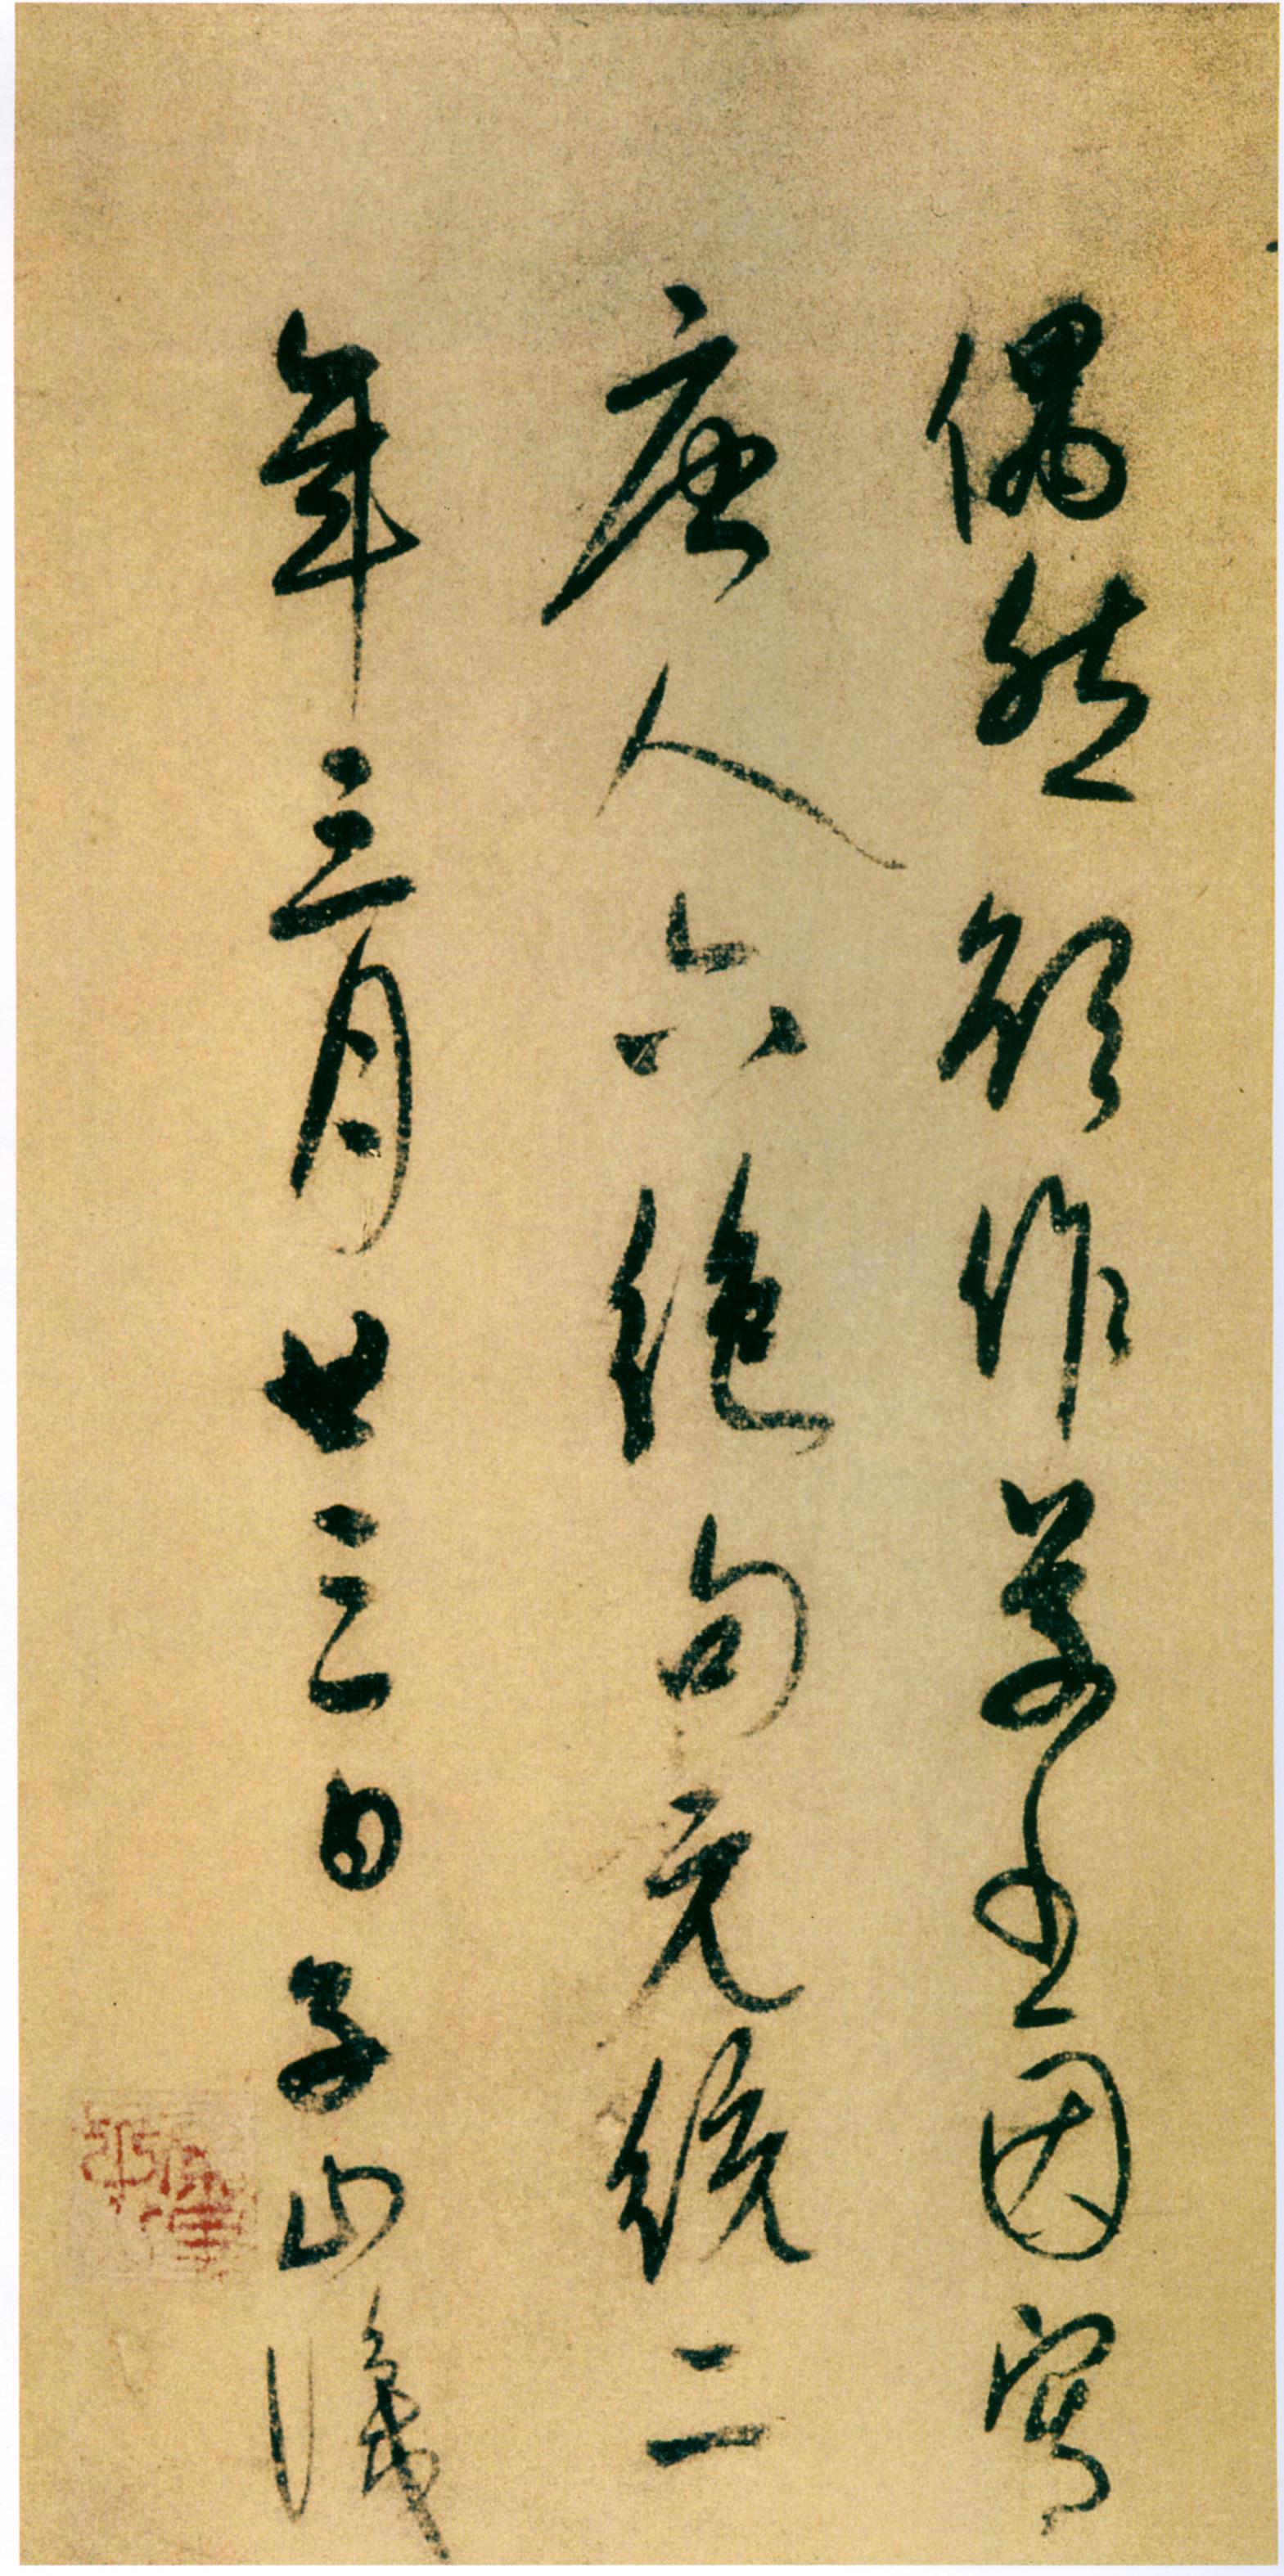 偶然欲作草書因寫
唐人六絕句元統二
年三月廿三日子山識